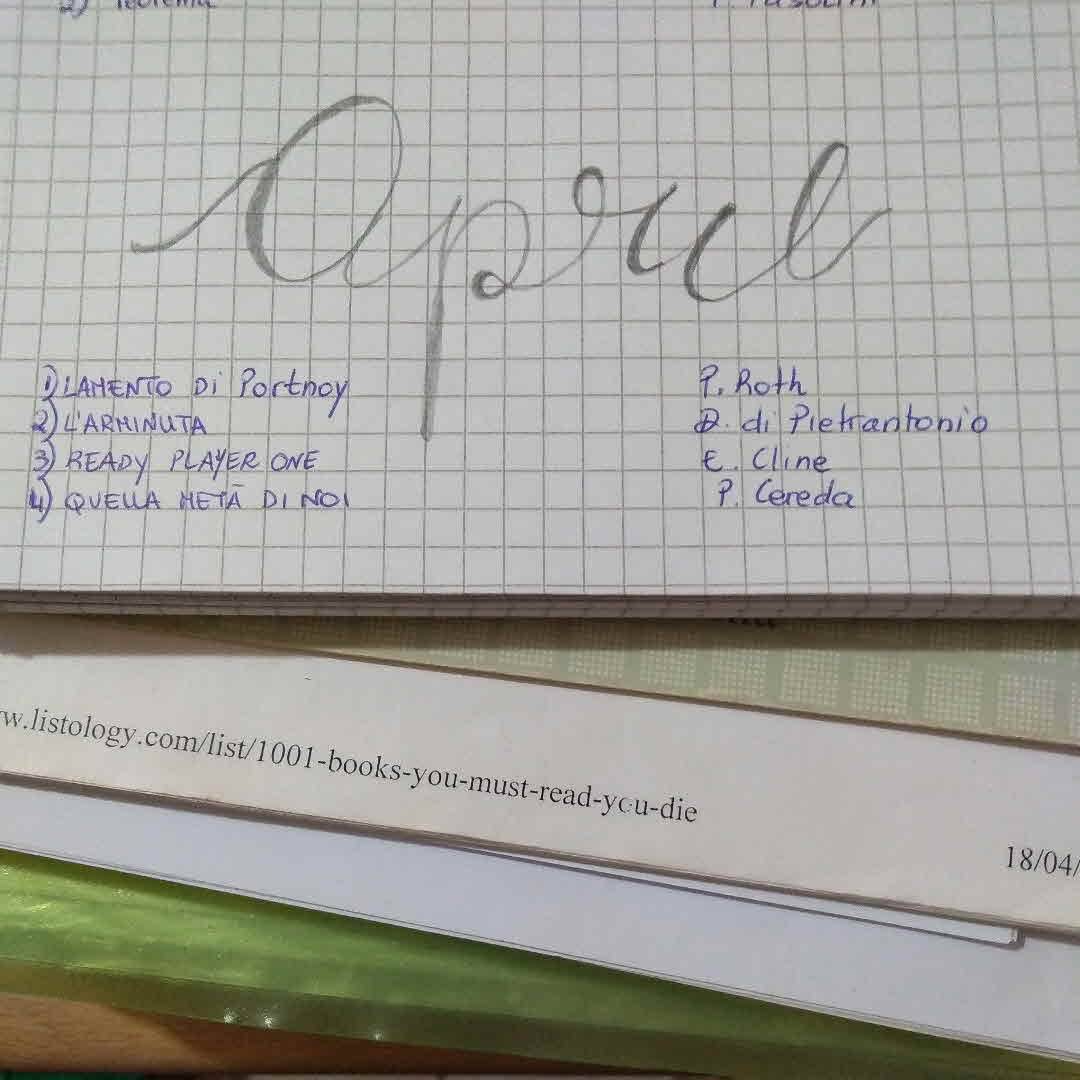 2) Teorema P. Pasolini
April
1) LAMENTO Di Portnoy P. Roth
2) L'ARMINUTA D. di Pietrantonio
3) READY PLAYER ONE E. Cline
4) QUELLA METĀ DI NOI P. Cereda
w.listology.com/list/1001-books-you-must-read-you-die
18/04/